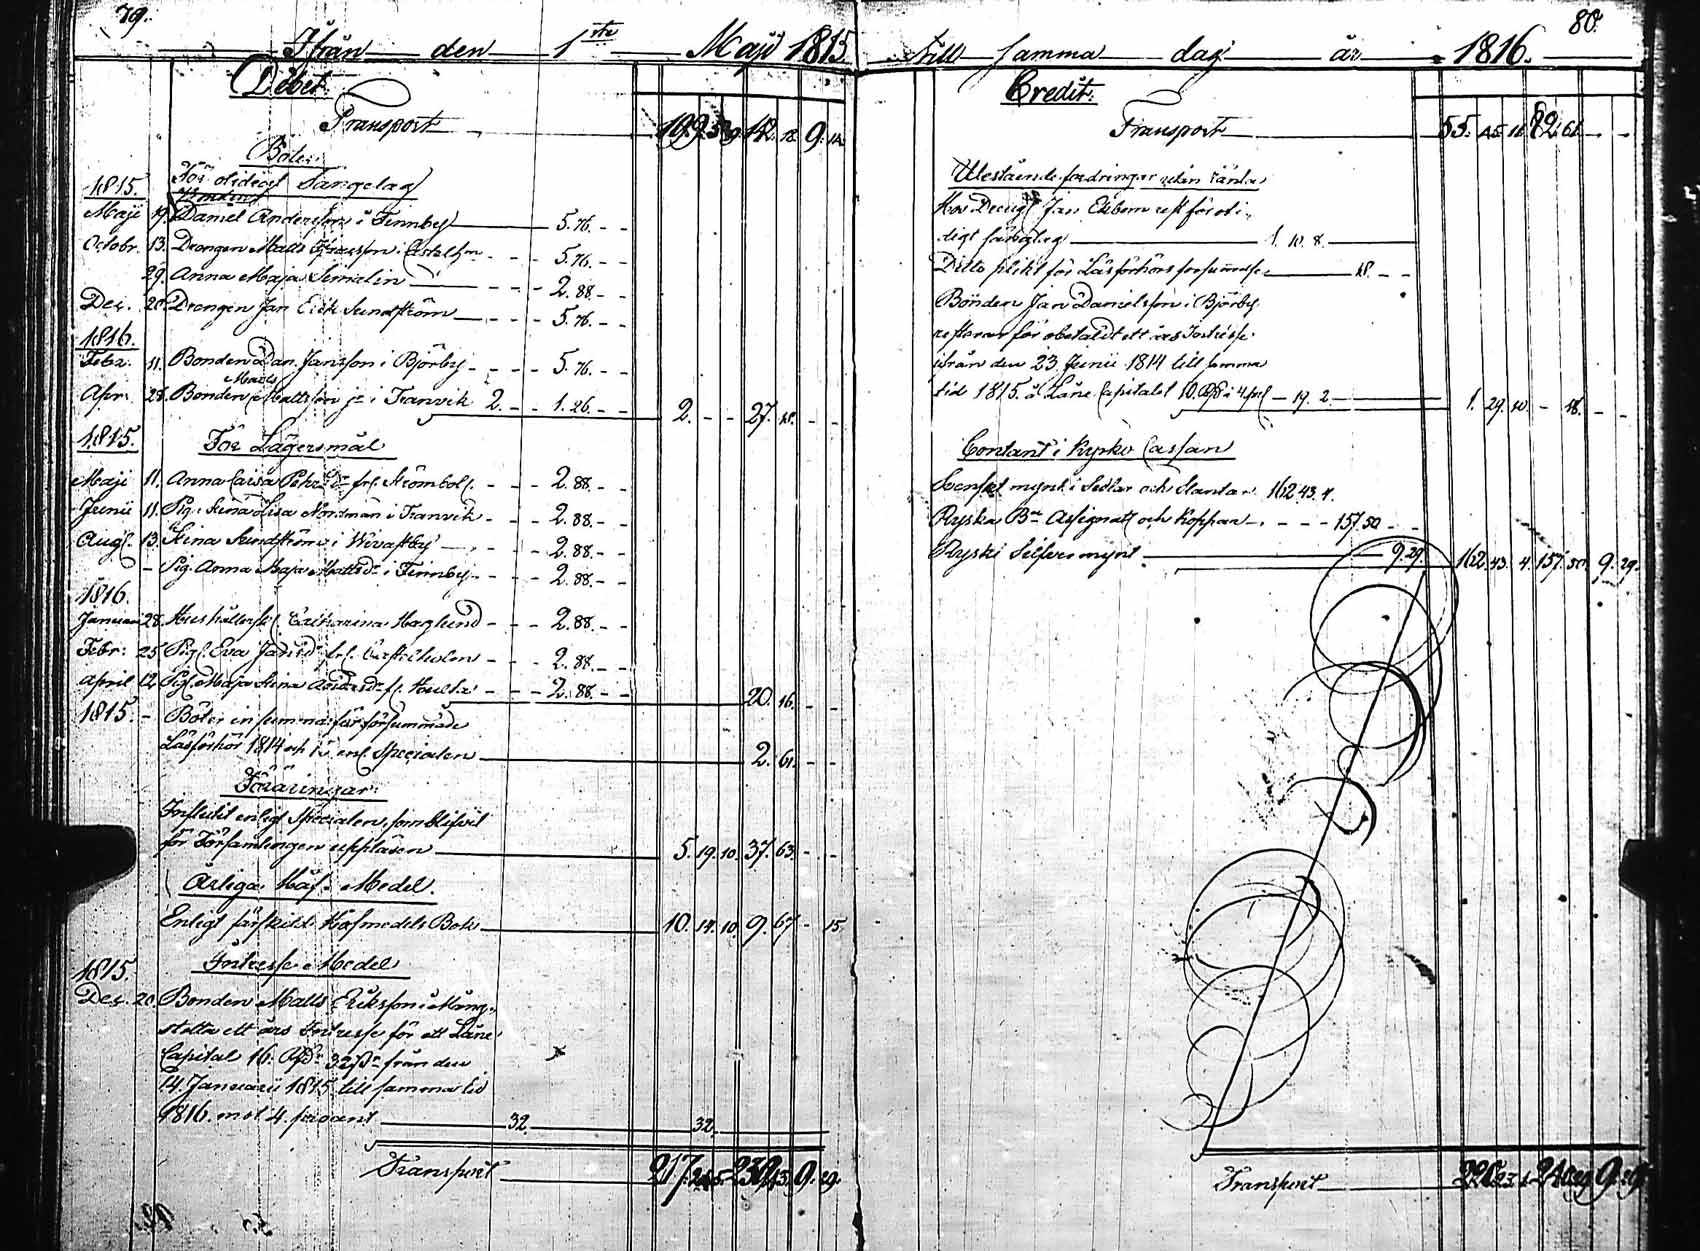 79.
Ifrån den 1sta Maji 1815
Debet.
Transport 199. 12. 18. 9. 14.
Böter:
För otidigt Sängelag
1815.
Maji 19. Daniel Andersson i Finnby 5. 76. - -
Octobr. 13. Drengen Matts - - - 5. 76. - -
29. Anna Maja Semelin - - - 2. 88. - -
Dec. 20. Drengen Jan Erik Sundström - - - 5. 76. - -
1816.
Febr. 11. Bonden Dan. Jansson i Björby - - - 5. 76. - -
Matts
Apr. 28. Bonden Mattsson jr i Tranvik 2. - - 1. 26. - - 2. - - 27. 18. - -
1815. För Lägersmål
Maji 11. Anna Caisa Pehrsdr frl. Strömbol. - - - 2. 88. - -
Junii 11. Pig. Stina Lisa Nordman i Tranvik - - - 2. 88. - -
Aug. 13. Stina Sundström i Vivastby - - - 2. 88. - -
- Pig. Anna Maja Mattsdr i Finnby - - - 2. 88. - -
1816.
Januari 28. Hushållersk. Catharina Haglund - - - 2. 88. - -
Febr: 25. Pig. Eva Jansdr frl. Castelholm - - - 2. 88. - -
April 12. Pig. Maja Stina - - - 2. 88. - - 20. 16. - -
1815. - Böter in summa för försummade
Läsförhör 1814 och 15 enl. Specialen 2. 61. - -
Föräringar:
Influtit enligt Specialen, som blifvit
för Församlingen uppläsen 5. 19. 10. 37. 63. - -
Årliga Håf-Medel.
Enligt särskild Håfmedels Bok 10. 14. 10. 9. 67. - 15.
Intresse Medel
1815.
Dec. 20. Bonden Matts Eriksson i Mång-
stekta ett års Intresse för ett Låne
Capital 16. Rdr 32 sr från den
14. Januarii 1815 till samma tid
1816. mot 4. procent 32. 32.
Transport 217. 239. 9. 29.
80.
Till samma dag år 1816.
Credit:
Transport 55. 45. 11. 82. 61. - -
Utestående fordringar utan ränta
Hos Dreng. Jan Ekbom rest för oti-
digt sängelag 1. 10. 8.
Ditto plikt för Läsförhörs försummelse 18. - -
Bonden Jan Danielsson i Björby
resterar för obetaldt ett års Intresse
ifrån den 23 Junii 1814 till samma
tid 1815. å Låne Capitalet à 4 pct - 19. 2. 1. 29. 10. - 18. - -
Contant i Kyrko Cassan
Svenskt mynt i Sedlar och Slantar 162. 43. 4.
Ryska Bco Assignatr och Koppar - - - 157. 50 - -
Ryskt Silfvermynt 9. 29. 162. 43. 4. 157. 50. 9. 29.
Transport